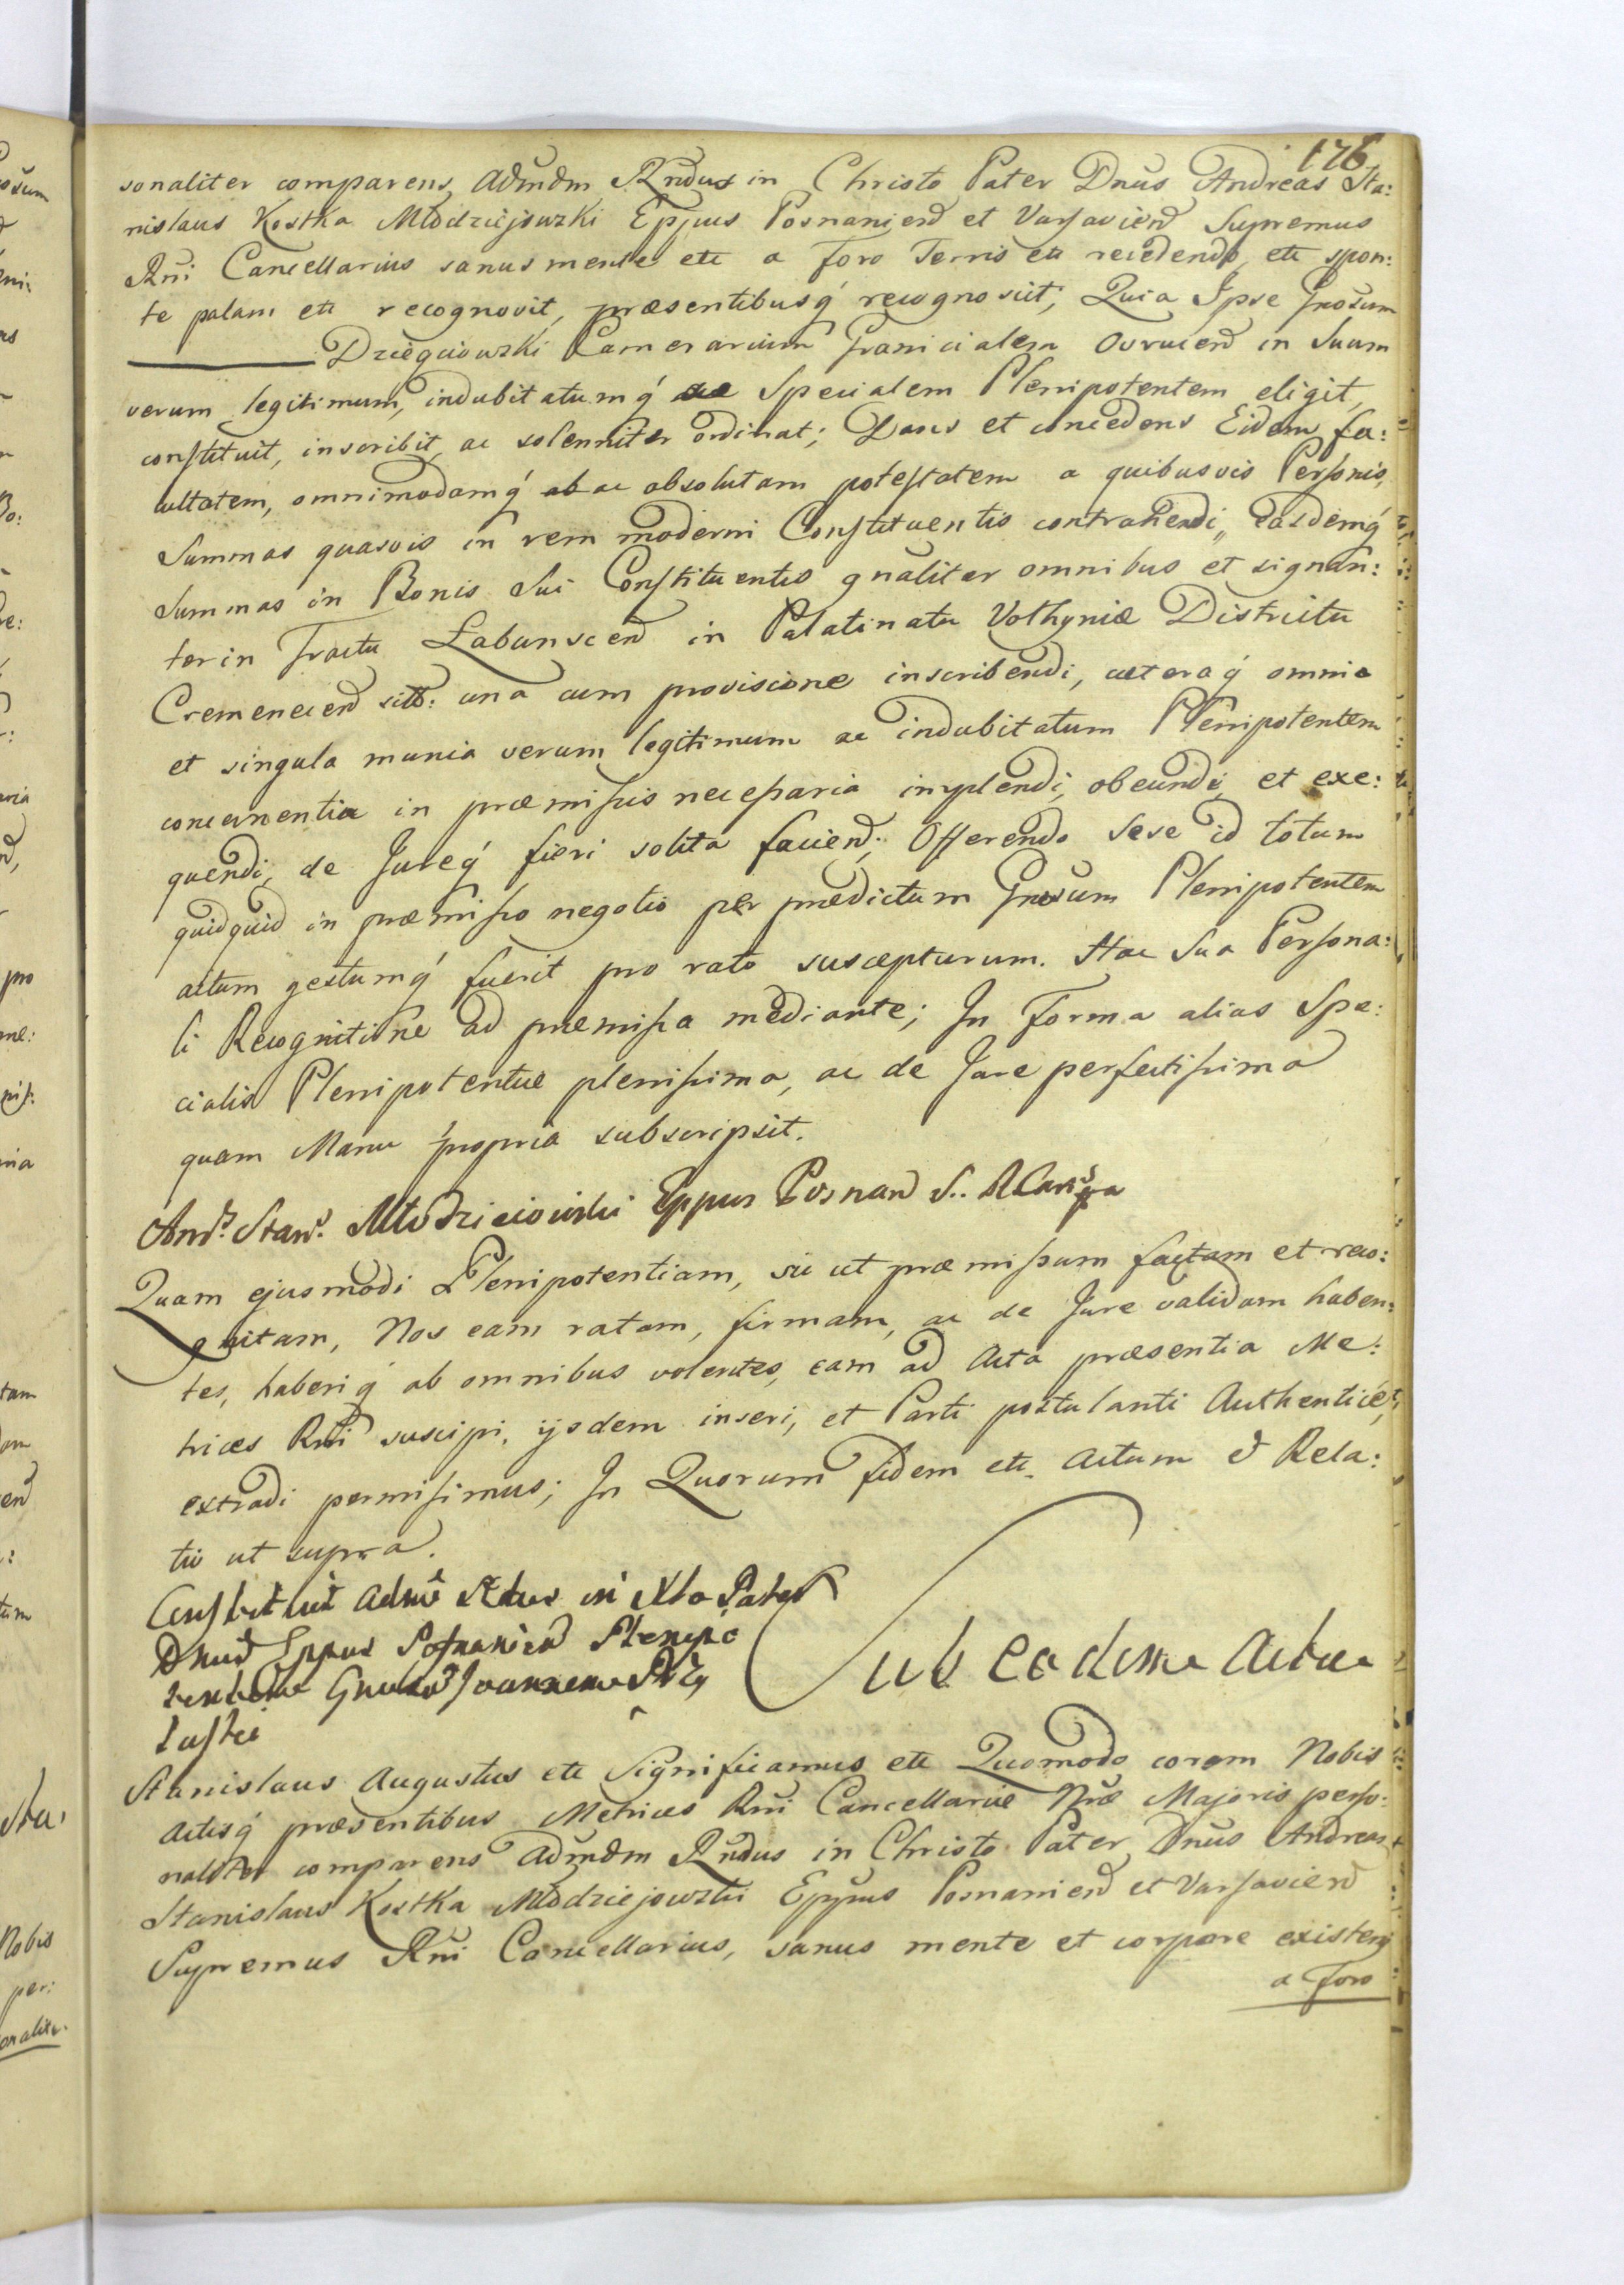 176
sonaliter comparens Admdm Rndus in Christo Pater Dnus Andreas Sta:
nislaus Kostka Młodziejowski Eppus Posnaniens et Varsaviens Supremus
Rni Cancellarius sanus mente etc a Foro Terris etc recedendo, etc spon:
te palam etc recognovit, præsentibusq́ recognoscit; Quia Ipse Gnosum
Dzięciowski Camerarium Granicialem Ovrucens in Suum
verum legitimum, indubitatumq́ ac Specialem Plenipotentem eligit,
constituit, inscribit, ac solenniter ordinat; Dans et concedens Eidem fa:
cultatem, omnimodamq́ ab ac absolutam potestatem a quibusvis Personis,
Summas quasvis in rem moderni Constituentis contrahendi, easdemq́
Summas in Bonis Sui Constituentis gnaliter omnibus et signan:
ter in Tractu Labunscen in Palatinatu Volhyniæ Districtu
Cremenecen sitt: una cum provisione inscribendi, cæteraq́ omnia
et singula munia verum legitimum ac indubitatum Plenipotentem
concernentia in præmissis necessaria implendi, obeundi, et exe:
quendi, de Jureq́ fieri solita faciend; Offerendo Sese id totum
quidquid in præmisso negotio per prædictum Gnosum Plenipotentem
actum gestumq́ fuerit pro rato suscepturum. Hac Sua Persona:
li Recognitione ad præmissa mediante; In Forma alias Spe:
cialis Plenipotentiæ plenissima, ac de Jure perfectissima
quam Manu propria subscripsit.
Andr. Stan. Młodzieiowski Eppus Posnan S.. R
Quam ejusmodi Plenipotentiam, sic ut præmissum factam et reco:
gnitam, Nos eam ratam, firmam, ac de Jure validam haben:
tes, haberiq́ ab omnibus volentes, eam ad Acta præsentia Me:
trices Rni suscipi, ijsdem inseri, et Parti postulanti Authenticè,
extradi permisimus; In Quorum fidem etc. Actum et Rela:
tio ut supra.
Constituit Admd Rdus in Xto Pater
Dnus Eppus Posnanien Plenipo
tentem Gnosum Joannem
Sub eodem Actu
Stanislaus Augustus etc Significamus etc Quomodo coram Nobis
Actisq́ præsentibus Metrices Rni Cancellariæ Nræ Majoris perso:
naliter comparens Admdm Rndus in Christo Pater Dnus Andreas
Stanislaus Kostka Młodziejowski Eppus Posnaniens et Varsaviens
Supremus Rni Cancellarius, sanus mente et corpore existens
a Foro